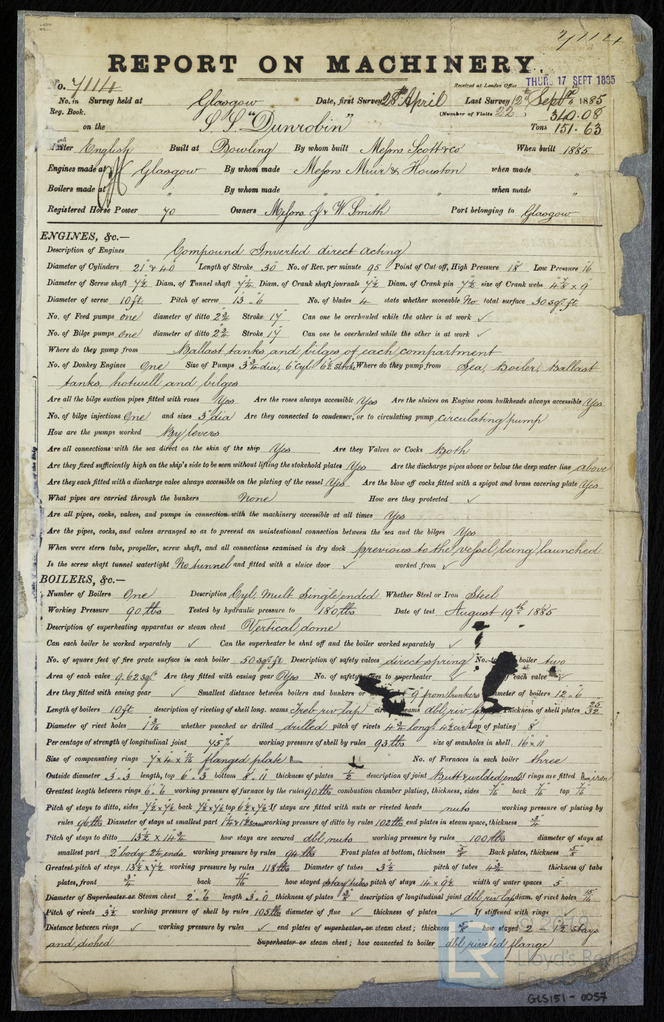 7/1124
REPORT ON MACHINERY.
No. 7114
Received at London Office THURS 17 SEPT 1885
No. in Survey held at Glasgow Date, first Survey 28th April Last Survey 12th Septr 1885
Reg. Book. (Number of Visits 22) 340.08
on the S.S. "Dunrobin" Tons 151.63
Master English Built at Bowling By whom built Messrs Scott & Co When built 1885
Engines made at Glasgow By whom made Messrs Muir & Houston when made "
Boilers made at " By whom made " when made "
Registered Horse Power 70 Owners Messrs J & W Smith Port belonging to Glasgow
ENGINES, &c.—
Description of Engines Compound Inverted direct acting
Diameter of Cylinders 21" & 40" Length of Stroke 30" No. of Rev. per minute 95 Point of Cut off, High Pressure 18" Low Pressure 16"
Diameter of Screw shaft 7½ Diam. of Tunnel shaft 7½ Diam. of Crank shaft journals 7½ Diam. of Crank pin 7½ size of Crank webs 4⅞ x 9
Diameter of screw 10ft Pitch of screw 13-6 No. of blades 4 state whether moveable No total surface 30 sq. ft
No. of Feed pumps one diameter of ditto 2¾ Stroke 17" Can one be overhauled while the other is at work ✓
No. of Bilge pumps one diameter of ditto 2¾ Stroke 17" Can one be overhauled while the other is at work ✓
Where do they pump from Ballast tanks, and bilges of each compartment
No. of Donkey Engines One Size of Pumps dia, 6" cyl Stroke Where do they pump from Sea, Boiler, Ballast
tanks, hotwell and bilges
Are all the bilge suction pipes fitted with roses Yes Are the roses always accessible Yes Are the sluices on Engine room bulkheads always accessible Yes
No. of bilge injections One and sizes 3" dia Are they connected to condenser, or to circulating pump circulating pump
How are the pumps worked By levers
Are all connections with the sea direct on the skin of the ship Yes Are they Valves or Cocks Both
Are they fixed sufficiently high on the ship's side to be seen without lifting the stokehold plates Yes Are the discharge pipes above or below the deep water line above
Are they each fitted with a discharge valve always accessible on the plating of the vessel Yes Are the blow off cocks fitted with a spigot and brass covering plate Yes
What pipes are carried through the bunkers None How are they protected ✓
Are all pipes, cocks, valves, and pumps in connection with the machinery accessible at all times Yes
Are the pipes, cocks, and valves arranged so as to prevent an unintentional connection between the sea and the bilges Yes
When were stern tube, propeller, screw shaft, and all connections examined in dry dock previous to the vessel being launched
Is the screw shaft tunnel watertight No tunnel and fitted with a sluice door ✓ worked from ✓
BOILERS, &c.—
Number of Boilers One Description Cyl. Mult Single ended Whether Steel or Iron Steel
Working Pressure 90 lbs Tested by hydraulic pressure to 180 lbs Date of test August 19th 1885
Description of superheating apparatus or steam chest Vertical dome
Can each boiler be worked separately ✓ Can the superheater be shut off and the boiler worked separately ✓
No. of square feet of fire grate surface in each boiler 50 sq. ft Description of safety valves direct spring No. to boiler two
Area of each valve 9.62 sq. Are they fitted with easing gear Yes No. of safety to superheater ✓ each valve ✓
Are they fitted with easing gear ✓ Smallest distance between boilers and bunkers or 9" from bunkers Diameter of boilers 12-6
Length of boilers 10ft description of riveting of shell long. seams Treb riv lap circum. seams dbl. riv. lap Thickness of shell plates 25/32
Diameter of rivet holes whether punched or drilled drilled pitch of rivets Lap of plating 8"
Per centage of strength of longitudinal joint 75% working pressure of shell by rules 93 lbs size of manholes in shell 16 x 11
Size of compensating rings flanged plate No. of Furnaces in each boiler three
Outside diameter 3-3 length, top 6-3 bottom 8-11 thickness of plates ½ description of joint Butt & welded ends if rings are fitted
Greatest length between rings 6-6 working pressure of furnace by the rules 90 lbs combustion chamber plating, thickness, sides back top
Pitch of stays to ditto, sides back top If stays are fitted with nuts or riveted heads nuts working pressure of plating by
rules 96 lbs Diameter of stays at smallest part working pressure of ditto by rules 102 lbs end plates in steam space, thickness
Pitch of stays to ditto how stays are secured dbl nuts working pressure by rules 100 lbs diameter of stays at
smallest part 2" body 2½ ends working pressure by rules 94 lbs Front plates at bottom, thickness Back plates, thickness
Greatest pitch of stays 13½ x 7½ working pressure by rules 118 lbs Diameter of tubes 3½ pitch of tubes 4¾ thickness of tube
plates, front back how stayed stay tubes pitch of stays 14 x 9½ width of water spaces 5
Diameter of Superheater or Steam chest 2-6 length 3-0 thickness of plates description of longitudinal joint dbl riv lap diam. of rivet holes
Pitch of rivets 3½ working pressure of shell by rules 105 lbs diameter of flue ✓ thickness of plates ✓ If stiffened with rings ✓
Distance between rings ✓ working pressure by rules ✓ end plates of superheater, or steam chest; thickness how stayed 2 1½ stays
and dished Superheater or steam chest; how connected to boiler dbl riveted flange
© 2019
LR
Lloyd's Register
GLS151-0057